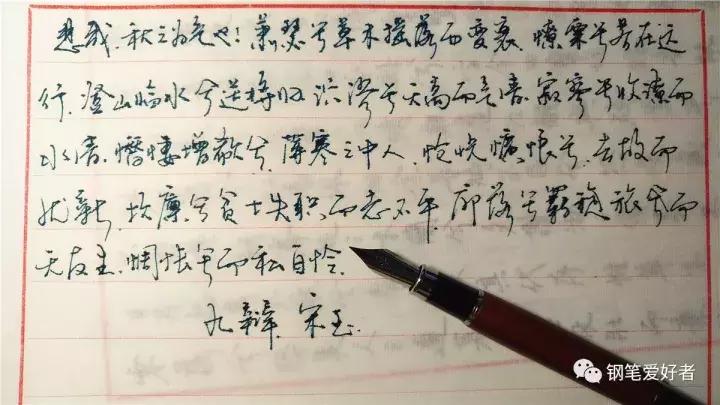 悲哉,秋之为气也!萧瑟兮草木摇落而变衰,憭栗兮若在远
行,登山临水兮送将归,泬漻兮天高而气清,寂寥兮收潦而
水清,憯悽增欷兮,薄寒之中人,怆怳懭悢兮,去故而
就新,坎廪兮贫士失职而志不平,廓落兮羁旅而
无友生,惆怅兮而私自怜。
九辩 宋玉
钢笔爱好者